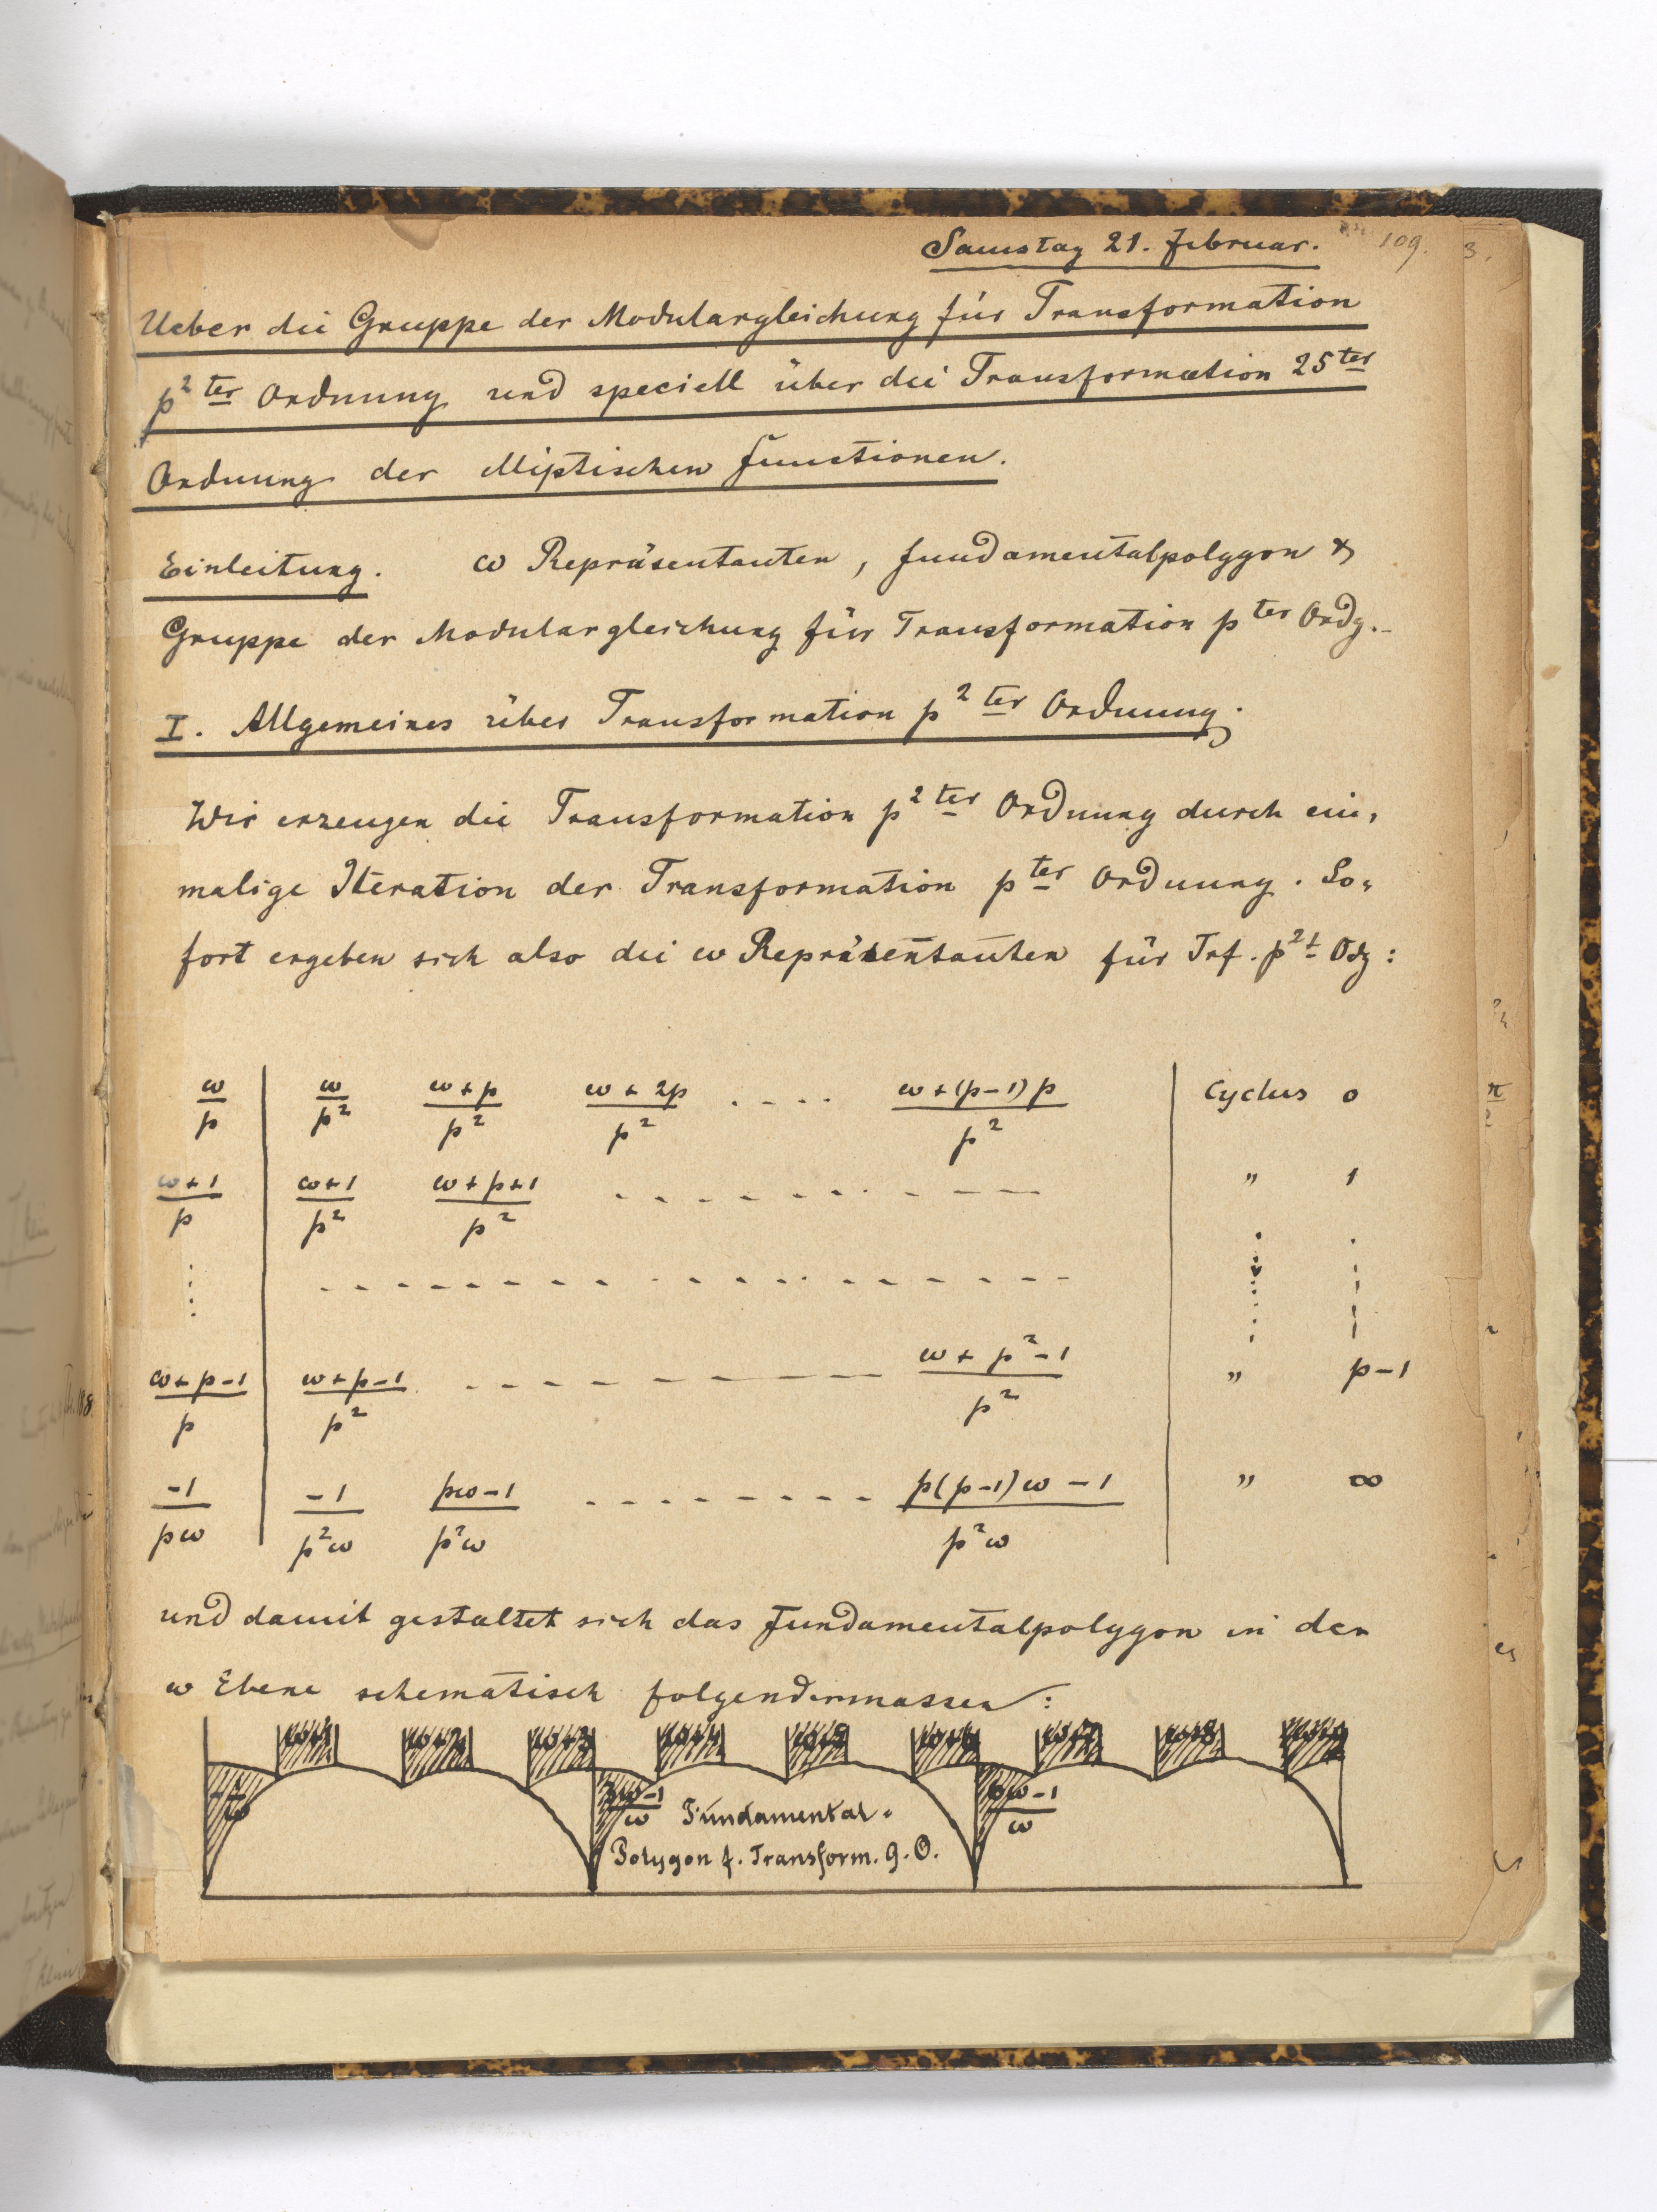 Samstag 21. Februar. 109.
Ueber die Gruppe der Modulargleichung für Transformation
p² ter Ordnung und speciell über die Transformation 25 ter
Ordnung der elliptischen Functionen.
Einleitung. ω Repräsentanten, Fundamentalpolygon &
Gruppe der Modulargleichung für Transformation p ter Ordg.
I. Allgemeines über Transformation p² ter Ordnung.
Wir erzeugen die Transformation p² ter Ordnung durch ein,
malige Iteration der Transformation p ter Ordnung. So,
fort ergeben sich also die ω Repräsentanten für Trf. p² t Odg:
ω/p | ω/p² (ω+p)/p² (ω+2p)/p² .... (ω+(p-1)p)/p² | Cyclus 0
(ω+1)/p | (ω+1)/p² (ω+p+1)/p² .......... | " 1
(ω+p-1)/p | (ω+p-1)/p² .......... (ω+p²-1)/p² | " p-1
-1/pω | -1/p²ω (pω-1)/p²ω ........ (p(p-1)ω-1)/p²ω | " ∞
und damit gestaltet sich das Fundamentalpolygon in der
ω Ebene schematisch folgendermassen:
ω+1 ω+2 ω+3 ω+4 ω+5 ω+6 ω+7 ω+8
(3ω-1)/ω (6ω-1)/ω
Fundamental-
Polygon f. Transform. 9. O.